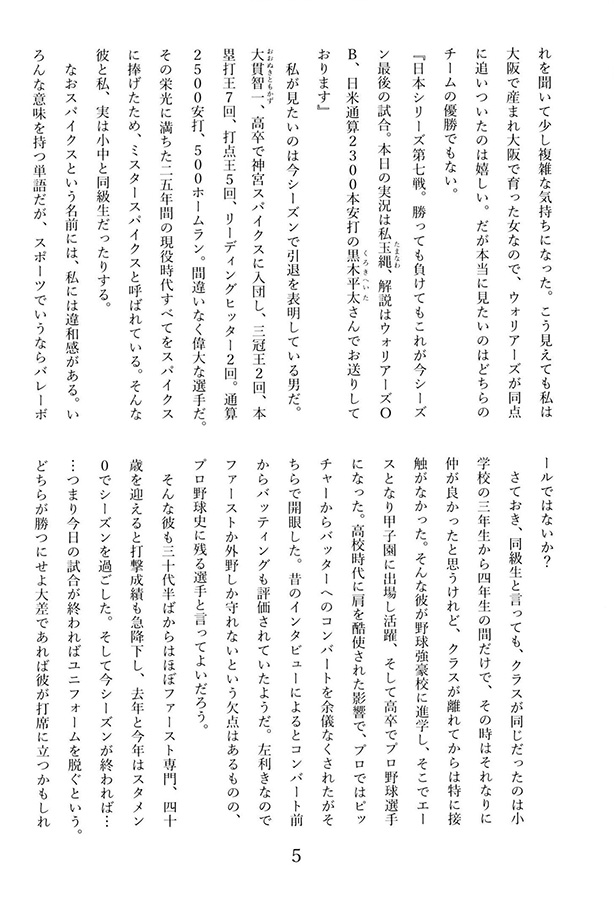 れを聞いて少し複雑な気持ちになった。こう見えても私は
大阪で産まれ大阪で育った女なので、ウォリアーズが同点
に追いついたのは嬉しい。だが本当に見たいのはどちらの
チームの優勝でもない。
『日本シリーズ第七戦。勝っても負けてもこれが今シーズ
ン最後の試合。本日の実況は私玉縄、解説はウォリアーズO
B、日米通算2300本安打の黒木平太さんでお送りして
おります』
私が見たいのは今シーズンで引退を表明している男だ。
大貫智一、高卒で神宮スパイクスに入団し、三冠王2回、本
塁打王7回、打点王5回、リーディングヒッター2回。通算
2500安打、500ホームラン。間違いなく偉大な選手だ。
その栄光に満ちた二五年間の現役時代すべてをスパイクス
に捧げたため、ミスタースパイクスと呼ばれている。そんな
彼と私、実は小中と同級生だったりする。
なおスパイクスという名前には、私には違和感がある。い
ろんな意味を持つ単語だが、スポーツでいうならバレーボ
ールではないか?
さておき、同級生と言っても、クラスが同じだったのは小
学校の三年生から四年生の間だけで、その時はそれなりに
仲が良かったと思うけれど、クラスが離れてからは特に接
触がなかった。そんな彼が野球強豪校に進学し、そこでエー
スとなり甲子園に出場し活躍、そして高卒でプロ野球選手
になった。高校時代に肩を酷使された影響で、プロではピッ
チャーからバッターへのコンバートを余儀なくされたがそ
ちらで開眼した。昔のインタビューによるとコンバート前
からバッティングも評価されていたようだ。左利きなので
ファーストか外野しか守れないという欠点はあるものの、
プロ野球史に残る選手と言ってよいだろう。
そんな彼も三十代半ばからはほぼファースト専門、四十
歳を迎えると打撃成績も急降下し、去年と今年はスタメン
0でシーズンを過ごした。そして今シーズンが終われば…
…つまり今日の試合が終わればユニフォームを脱ぐという。
どちらが勝つにせよ大差であれば彼が打席に立つかもしれ
5